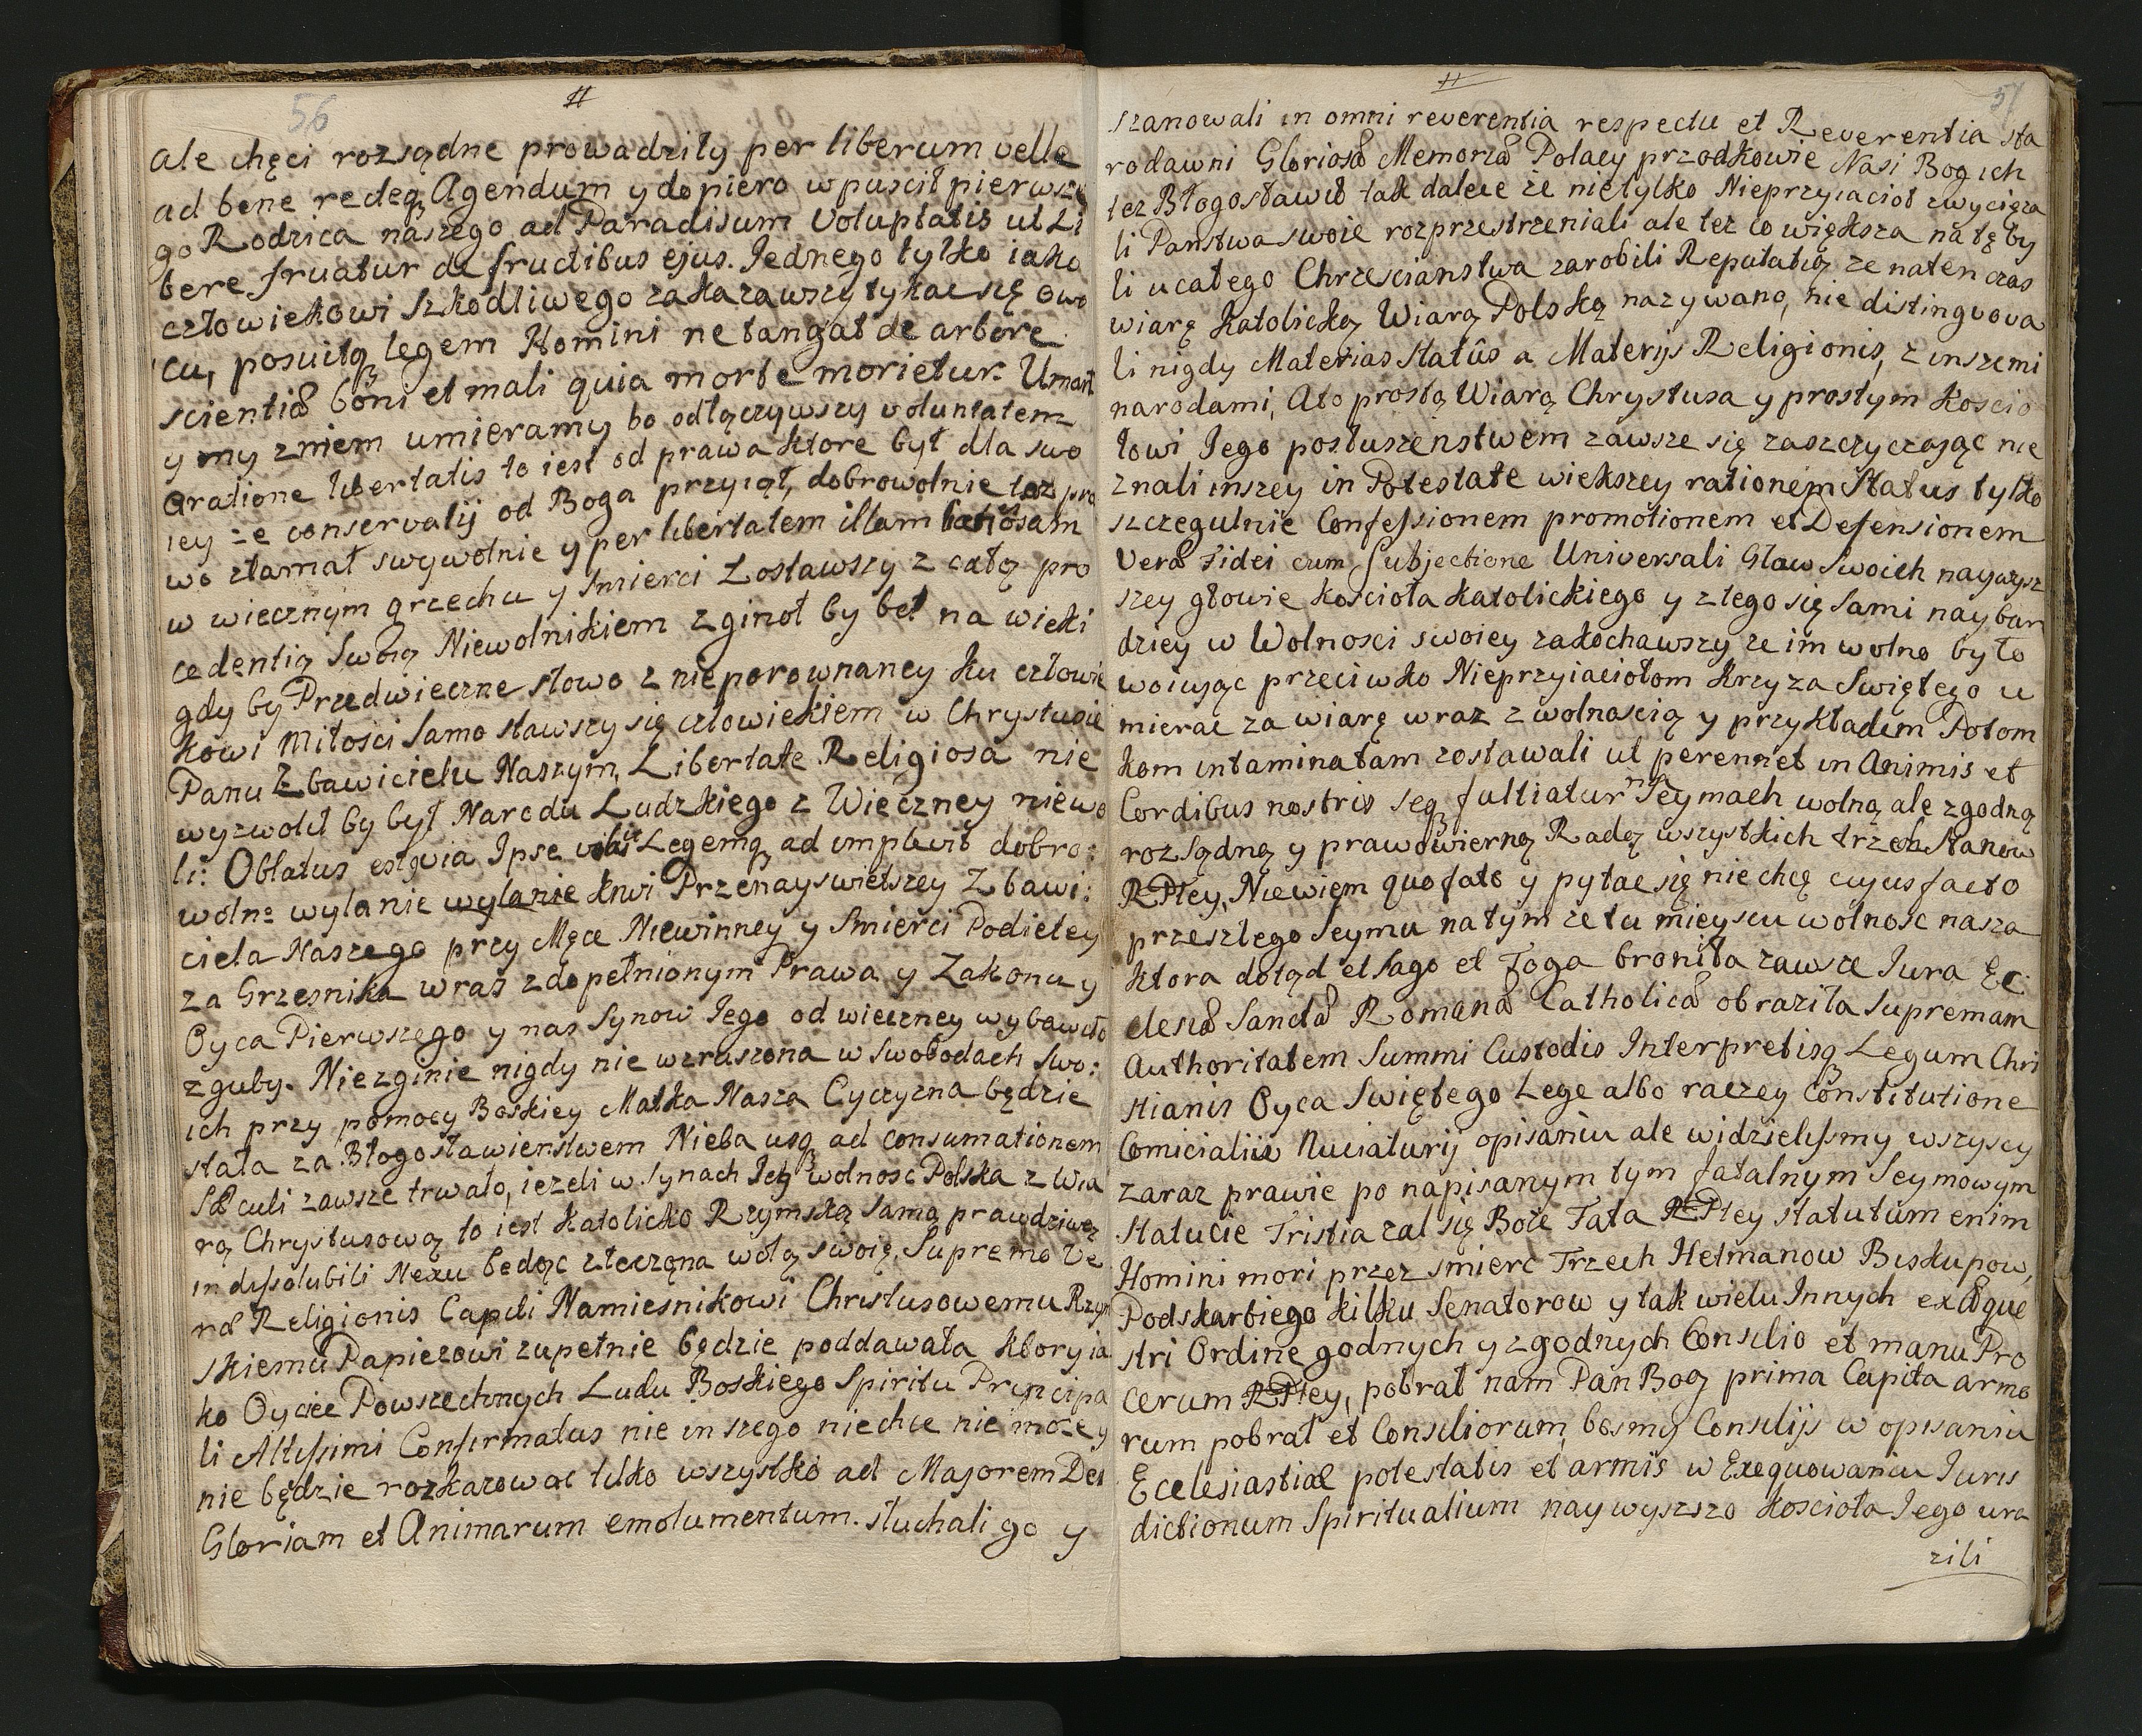 56
#
ale chęci rozsądne prowadziły per liberum velle
ad bene recteq Agendum y dopiero wpuscił pierwsze
go Rodzica naszego ad Paradisum Voluptatis ut Li
bere fruatur de fructibus ejus. Jednego tylko iako
człowiekowi szkodliwego zakazawszy tykac się owo
cu, posuitq legem Homini ne tangat de arbore
scientiæ boni et mali quia morte morietur. Umarł
y my zniem umieramy bo odłączywszy voluntatem
a ratione libertatis to iest od prawa ktore był dla swo
iey że conservatij od Boga przyiął, dobrowolnie toz pra
wo złamał swywolnie y per libertatem illam
w wiecznym grzechu y smierci Zostawszy z całą pro
cedentią Swoią Niewolnikiem zginoł by beł na wieki
gdy by Przedwieczne słowo z nieporownaney ku człowie
kowi miłosci Samo stawszy się człowiekiem w Chrystusie
Panu Zbawicielu Naszym, Libertate Religiosa nie
wyzwolił by był Narodu Ludzkiego z Wieczney niewo
li: Oblatus est quia Ipse Legemq ad implevit dobro:
wolne wylanie wylanie krwi Przenayswiętszey Zbawi:
ciela Naszego przy Męce Niewinney y Smierci Podietey
za Grzesnika wraz zdopełnionym Prawa y Zakonu y
Oyca Pierwszego y nas Synow Jego od wieczney wybawiło
zguby. Niezginie nigdy nie wzruszona w Swobodach Swo:
ich przy pomocy Boskiey Matka Nasza Oyczyzna będzie
stała za Błogosławienstwem Nieba usq ad consumationem
Sæculi zawsze trwało, iezeli w Synach Jey wolnosc Polska z Wia
rą Chrystusową to iest Katolicko Rzymską Samą prawdziwą
indyssolubili Nexu będąc złeczona wolą swoię, Supremo Ve
ræ Religionis Capiti Namiesnikowi Christusowemu Rzym
skiemu Papiezowi zupełnie będzie poddawała ktory ia
ko Oyciec Powszechnych Ludu Boskiego Spiritu Principa
li Altissimi Confirmatus nie inszego niechce nie może y
nie będzie rozkazowac tilko wszystko ad Majorem Dei
Gloriam et Animarum emolumentum. słuchali go y
#
57
szanowali in omni reverentia respectu et Reverentia sta
rodawni Gloriosæ Memoriæ Polacy przodkowie Nasi Bog ich
tez Błogosławił tak dalece że nietylko Nieprzyiacioł zwycięza
li Panstwa swoie rozprzestrzeniali ale tez co większa na tę by
li u całego Chrzescianstwa zarobili Reputatią ze naten czas
wiarę Katolicką Wiarą Polską nazywano, nie distingvova
li nigdy Materias Statûs a Materijs Religionis, z inszemi
narodami, Ato prostą Wiarą Chrystusa y prostym Koscio
łowi Jego posłuszenstwem zawsze się zaszczyczaiąc nie
znali inszey in Potestate wiekszey rationem Status tylko
szczegulnie Confessionem promotionem et Defensionem
Veræ Fidei cum Subjectione Universali Głow Swoich naywysz
szey głowie kosciola Katolickiego y ztego się Sami naybar
dziey w Wolnosci swoiey zakochawszy ze im wolno było
woiuąc przeciwko Nieprzyiaciołom Krzyza Swiętego u
mierac za wiarę wraz z wolnoscią y przykładem Potom
kom intaminatam zostawali ut perennet in Animis et
Cordibus nostris seq fultiatur na Seymach wolną ale zgodną
rozsądną y prawowierną Radą wszystkich trzech Stanow
RPtey, Niewiem quo fato y pytac się niechcę cuyus facto
przeszłego Seymu na tym ze tu mieyscu wolnosc nasza
ktora dotąd et Sago et Toga broniła zawsze Jura Ec
clesiæ Sanctæ Romanæ Catholicæ obraziła Supremam
Authoritatem Summi Custodis Interpretisq Legum Chri
stianis Oyca Swiętego Lege albo raczey Constitutione
Comicialiis Nuciaturij opisaniu ale widzielismy wszyscy
zaraz prawie po napisanym tym fatalnym Seymowym
Statucie Tristia zal się Boże Fata RPtey statutum enim
Homini mori przez smierc Trzech Hetmanow Biskupow,
Podskarbiego kilku Senatorow y tak wielu Innych ex Eque
stri Ordine godnych y zgodnych Consilio et manu Pro
cerum RPtey, pobrał nam Pan Bog prima Capita armo
rum pobrał et Consiliorum, bosmy Consilijs w opisaniu
Ecelesiastiæ potestatis et armis w Exequowaniu Juris
dictionum Spiritualium naywyszszo kosciola Jego ura
zili